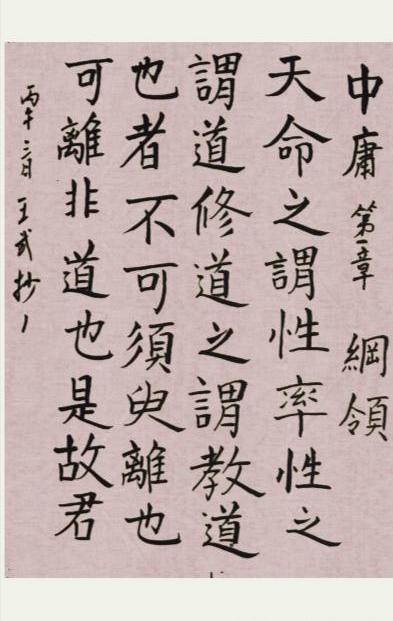 中庸 第一章 綱領
天命之謂性率性之
謂道修道之謂教道
也者不可須臾離也
可離非道也是故君
丙午 三日 王武抄